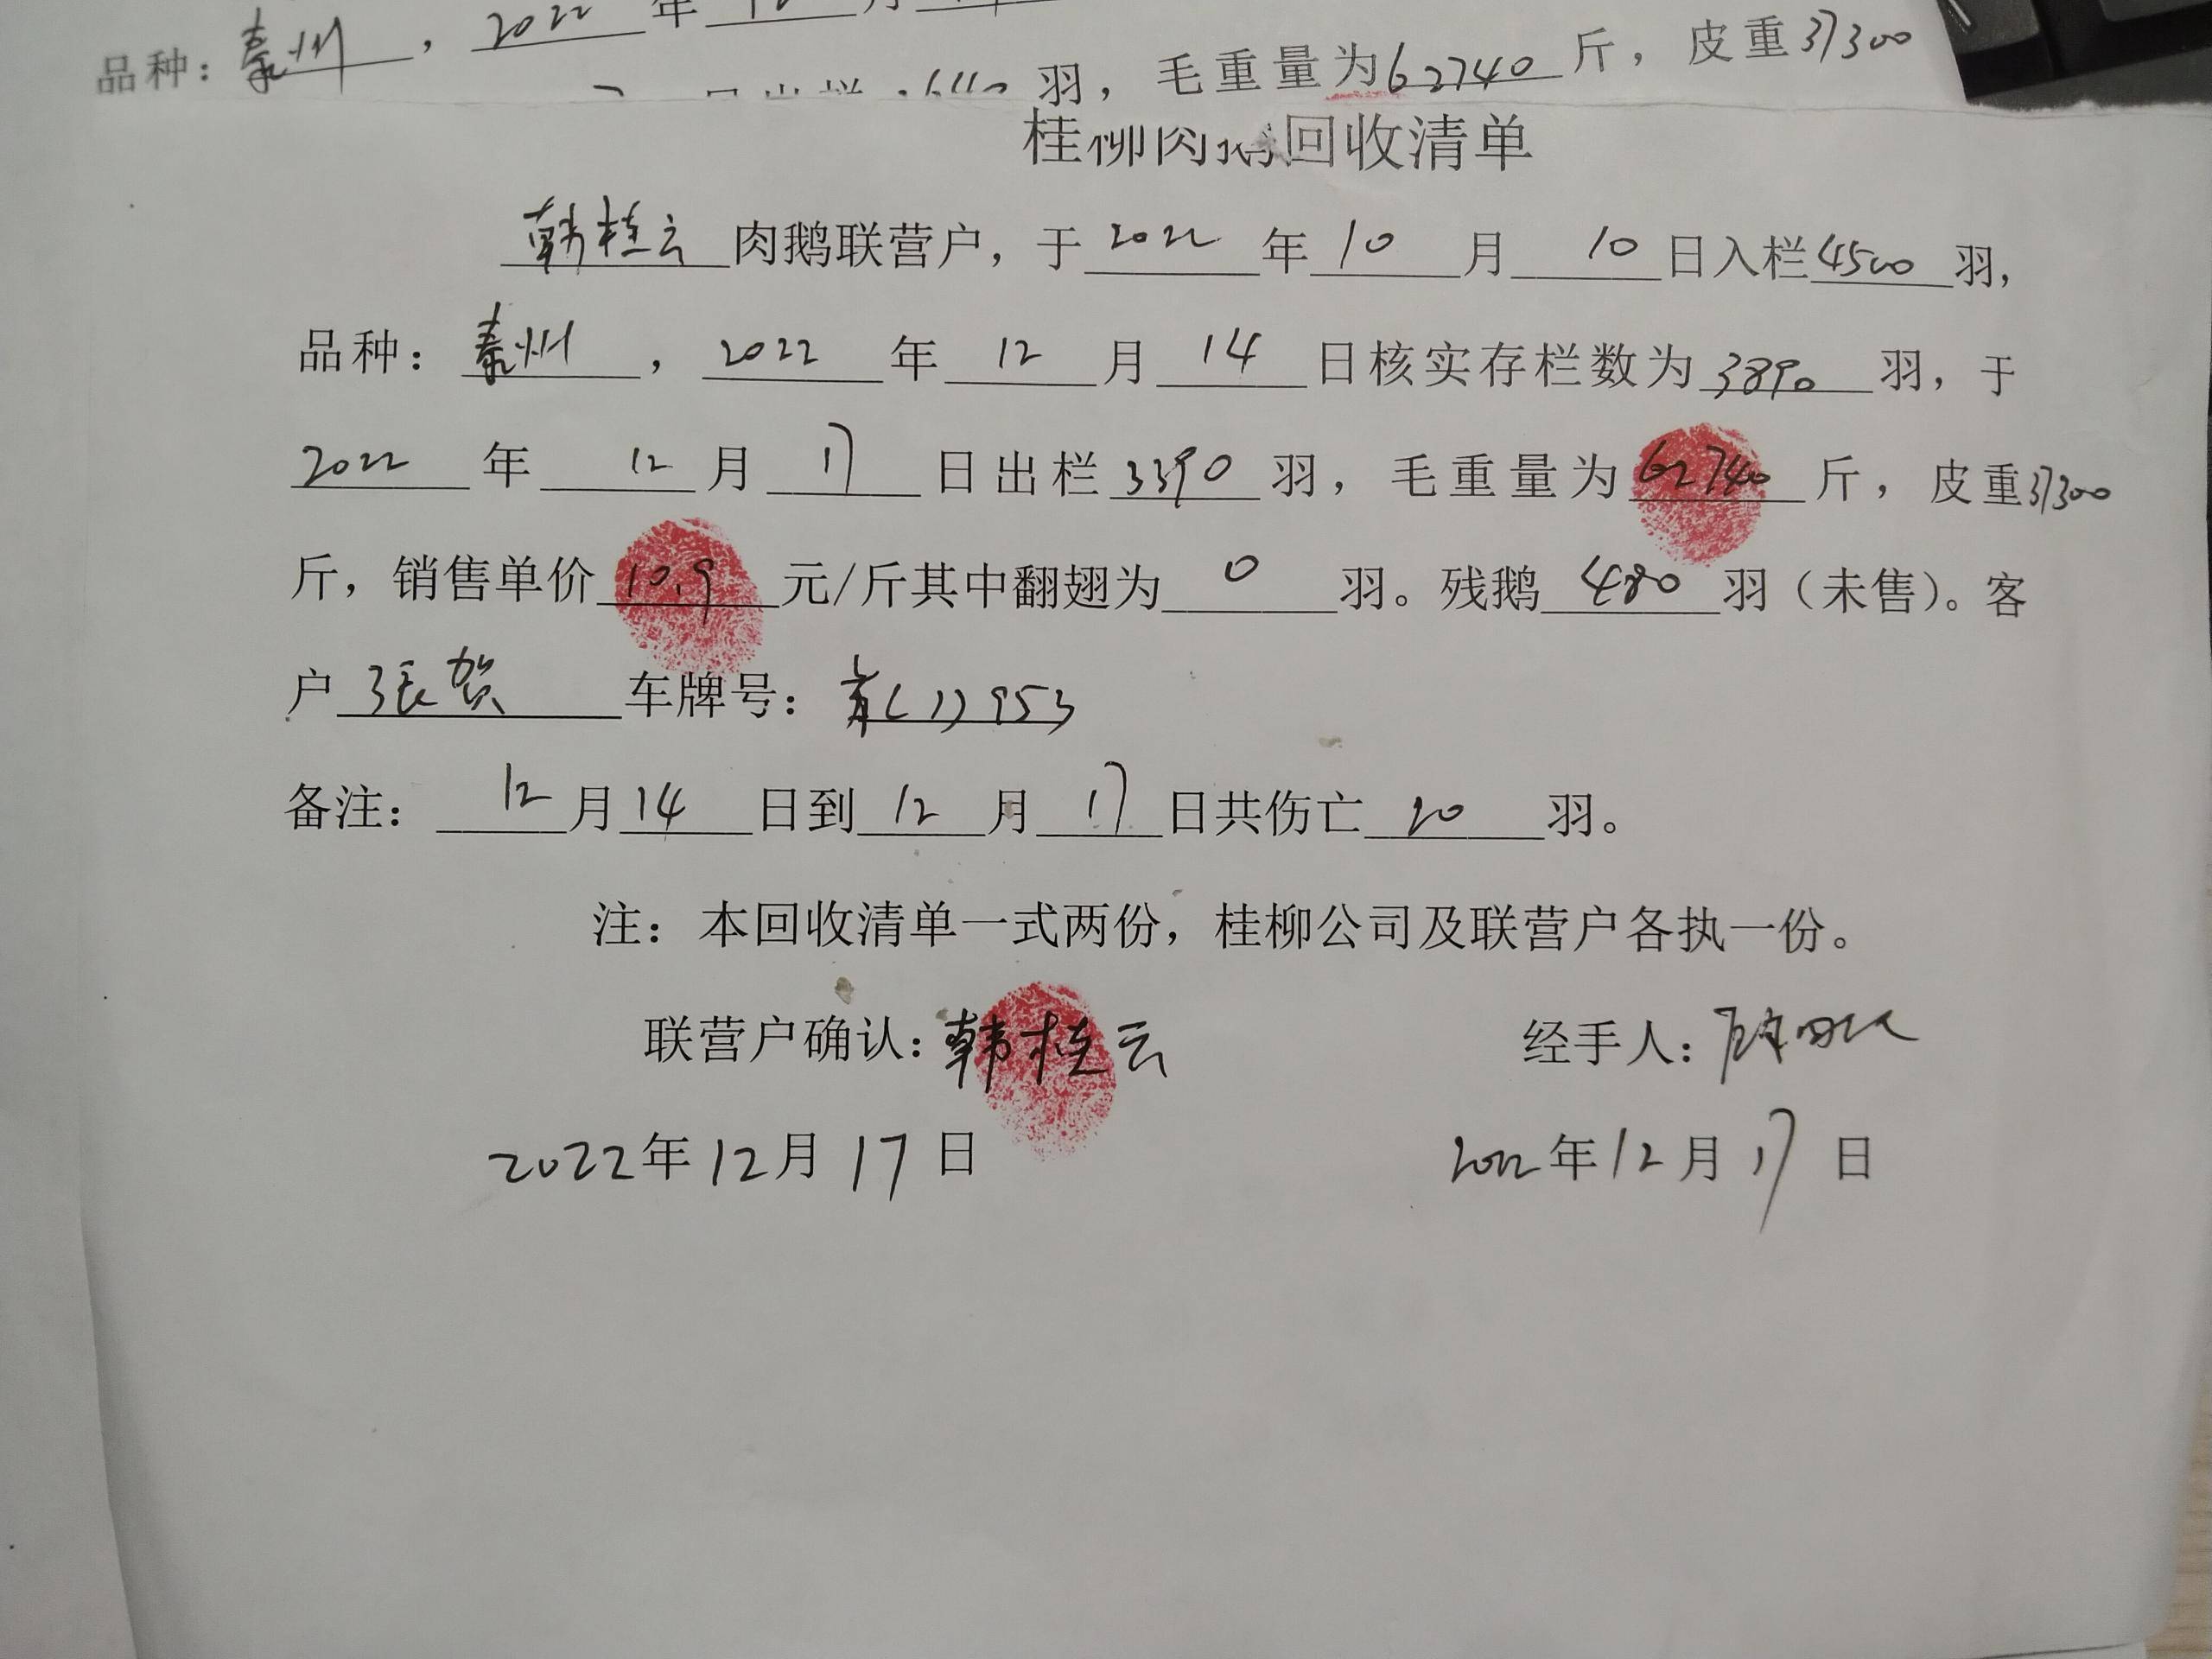 品种：泰州，2022年12月
羽，毛重量为62740斤，皮重37300
桂柳肉鹅回收清单
韩桂云肉鹅联营户，于2022年10月10日入栏4500羽，
品种：泰州，2022年12月14日核实存栏数为3890羽，于
2022年12月17日出栏3390羽，毛重量为62740斤，皮重37300
斤，销售单价10.9元/斤其中翻翅为0羽。残鹅480羽（未售）。客
户张贺车牌号：
备注：12月14日到12月17日共伤亡20羽。
注：本回收清单一式两份，桂柳公司及联营户各执一份。
联营户确认：韩桂云 经手人：
2022年12月17日 2022年12月17日